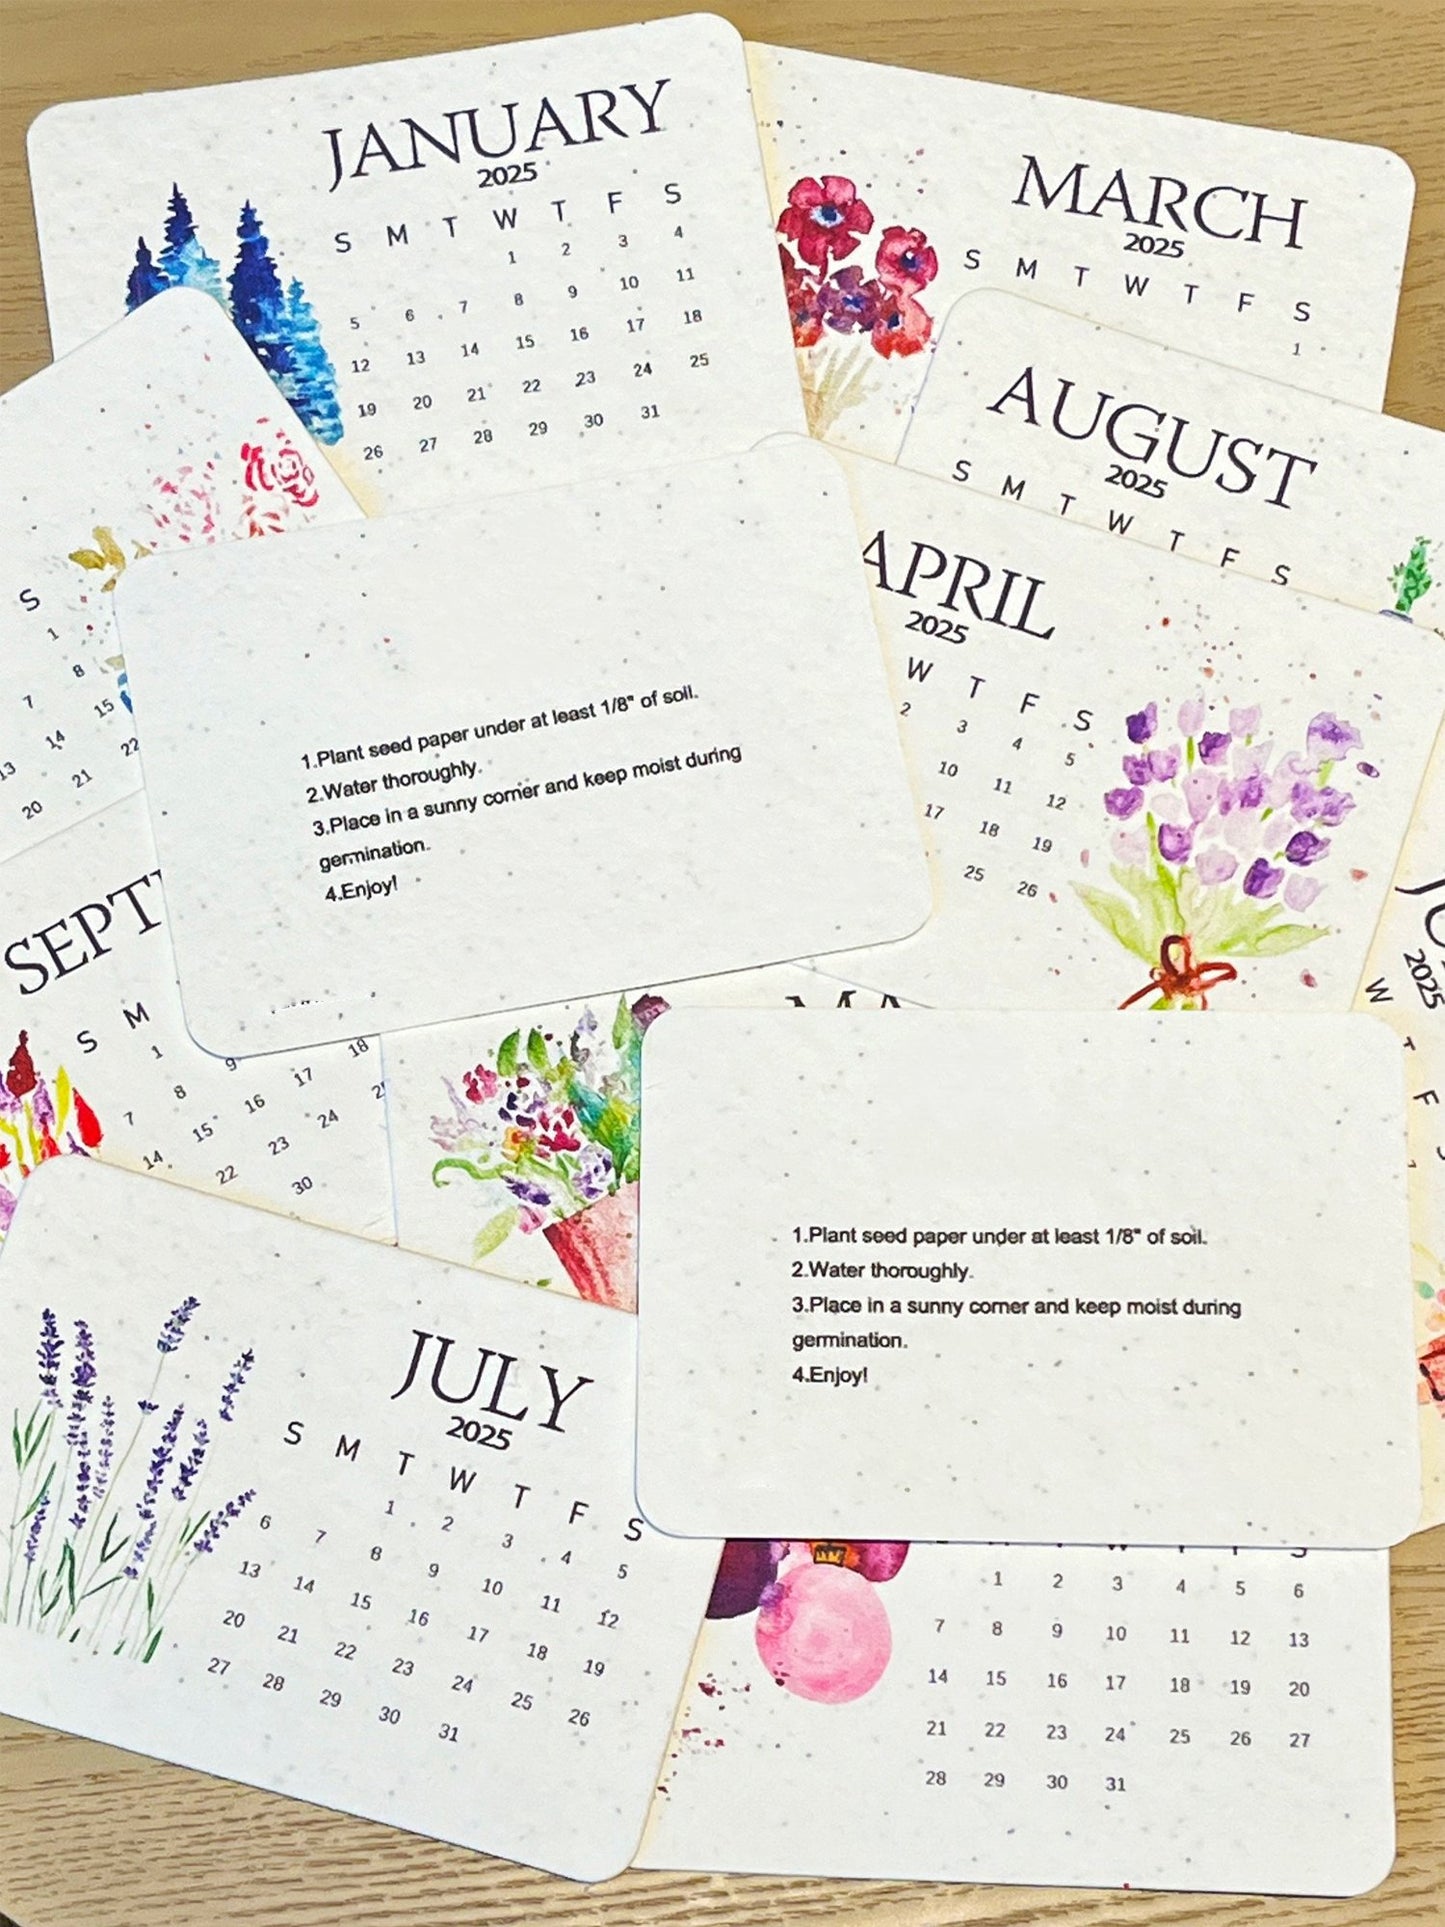 JANUARY
2025
S M T W T F S
1 2 3 4
5 6 7 8 9 10 11
12 13 14 15 16 17 18
19 20 21 22 23 24 25
26 27 28 29 30 31
MARCH
2025
S M T W T F S
1
AUGUST
2025
S M T W T F S
S
1
7 8
13 14 15
20 21 22
APRIL
2025
W T F S
2 3 4 5
10 11 12
17 18 19
25 26
1.Plant seed paper under at least 1/8" of soil.
2.Water thoroughly.
3.Place in a sunny corner and keep moist during
germination.
4.Enjoy!
2025
W
T
F
S M
1
7 8 9
14 15 16 17 18
22 23 24
30
1.Plant seed paper under at least 1/8" of soil.
2.Water thoroughly.
3.Place in a sunny corner and keep moist during
germination.
4.Enjoy!
JULY
2025
S M T W T F S
1 2 3 4 5
6 7 8 9 10 11 12
13 14 15 16 17 18 19
20 21 22 23 24 25 26
27 28 29 30 31
1 2 3 4 5 6
7 8 9 10 11 12 13
14 15 16 17 18 19 20
21 22 23 24 25 26 27
28 29 30 31